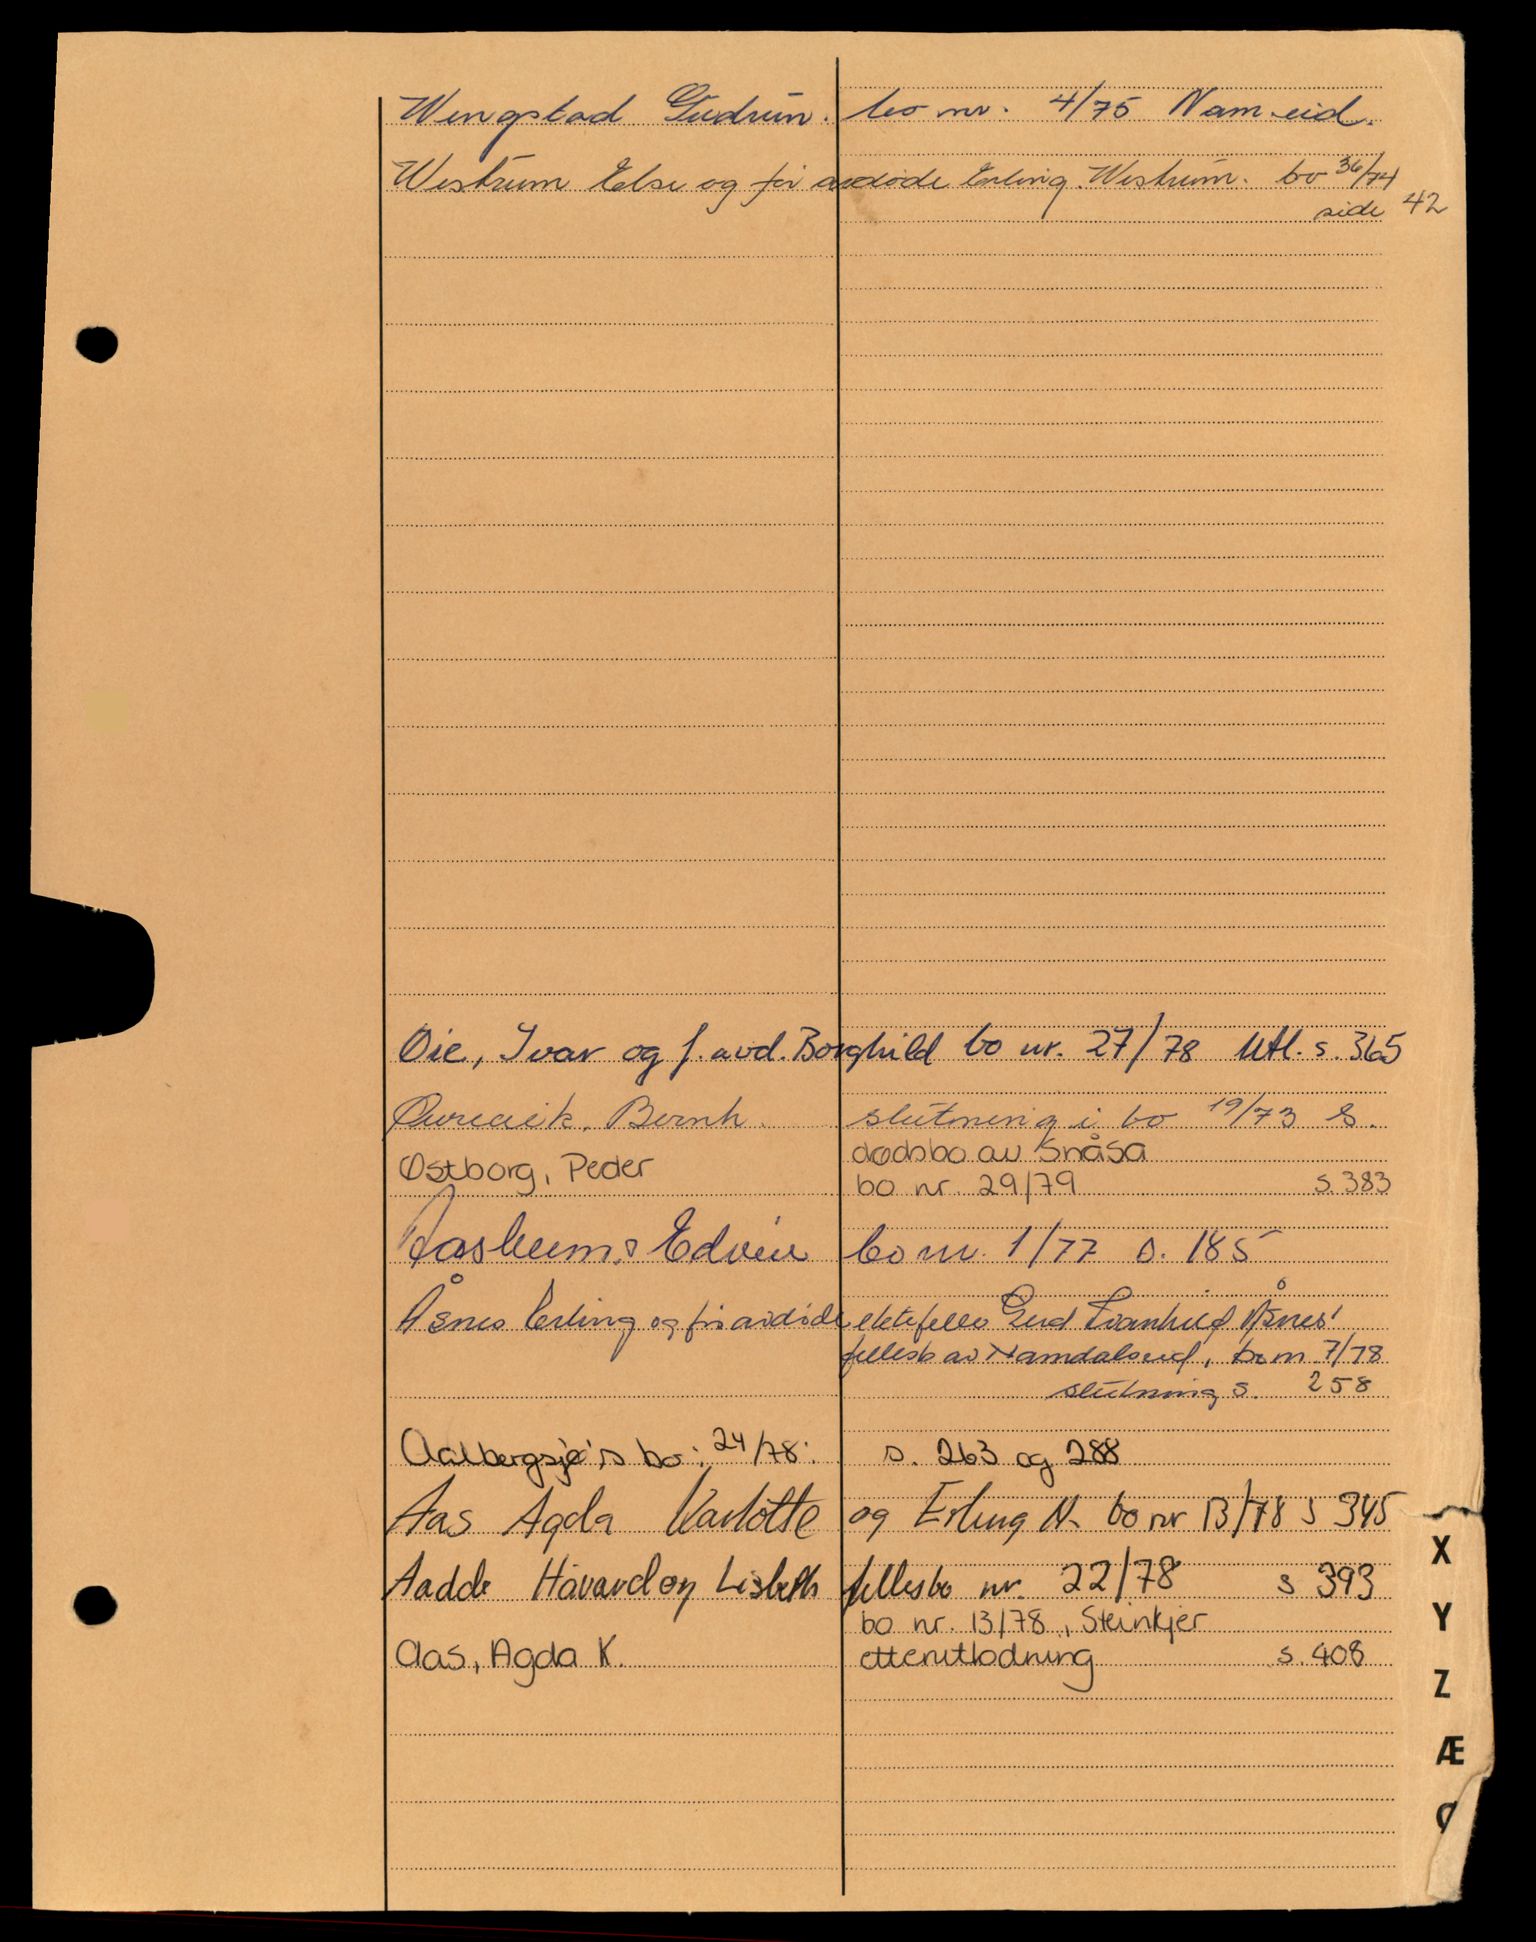 Wengstad Gudrun. bo nr. 4/75 Nam.eid.
Westrum Else og før avdøde Erling Westrum. bo 36/74
side 42
Øie, Ivar og f. avd. Borghild bo nr. 27/78 Utl. s. 365
Bernh. slutning i bo 19/73 S.
dødsbo av Snåsa
Østborg, Peder
bo nr. 29/79 s. 383
Aasheim, Edvin bo nr. 1/77 s. 185
Åsnes Erling og før avdøde ektefelle Gerd Åsnes'
fellesb av Namdalseid, bo nr. 7/78
slutning s. 258
Aalbergsjø's bo: 24/78: s. 263 og 288
Aas Agda Karlotte og Erling N. bo nr 13/78 s 345
Aadde Håvard og Lisbeth fellesbo nr. 22/78 s 393
bo nr. 13/78, Steinkjer
Aas, Agda K. etterutlodning s. 408
X
Y
Z
Æ
Ø